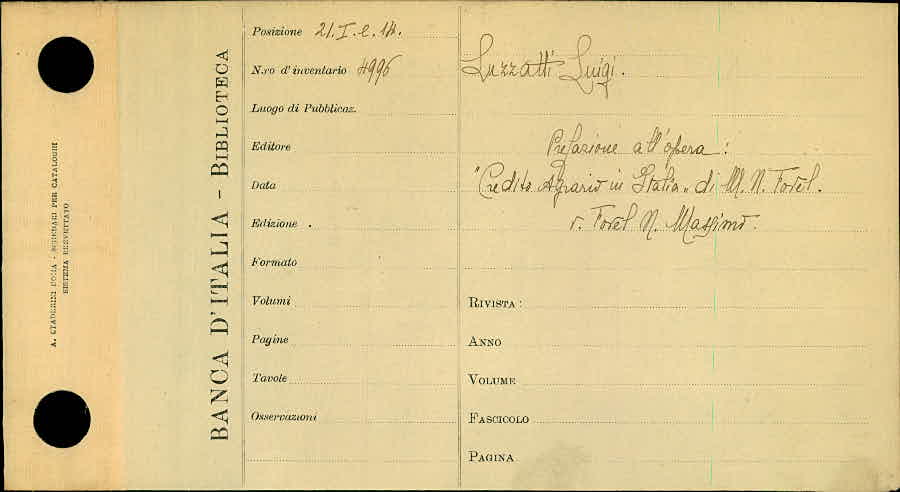 A. STADERINI ROMA - SCHEDARI PER CATALOGHI
SISTEMA BREVETTATO
BANCA D'ITALIA - BIBLIOTECA
Posizione 21.I.e.14.
N.ro d'inventario 4996
Luogo di Pubblicaz.
Editore
Data
Edizione .
Formato
Volumi
Pagine
Tavole
Osservazioni
Luzzatti Luigi.
Prefazione all'opera:
"Credito Agrario in Italia" di M. N. Forel.
v. Forel N. Massimo.
RIVISTA:
ANNO
VOLUME
FASCICOLO
PAGINA